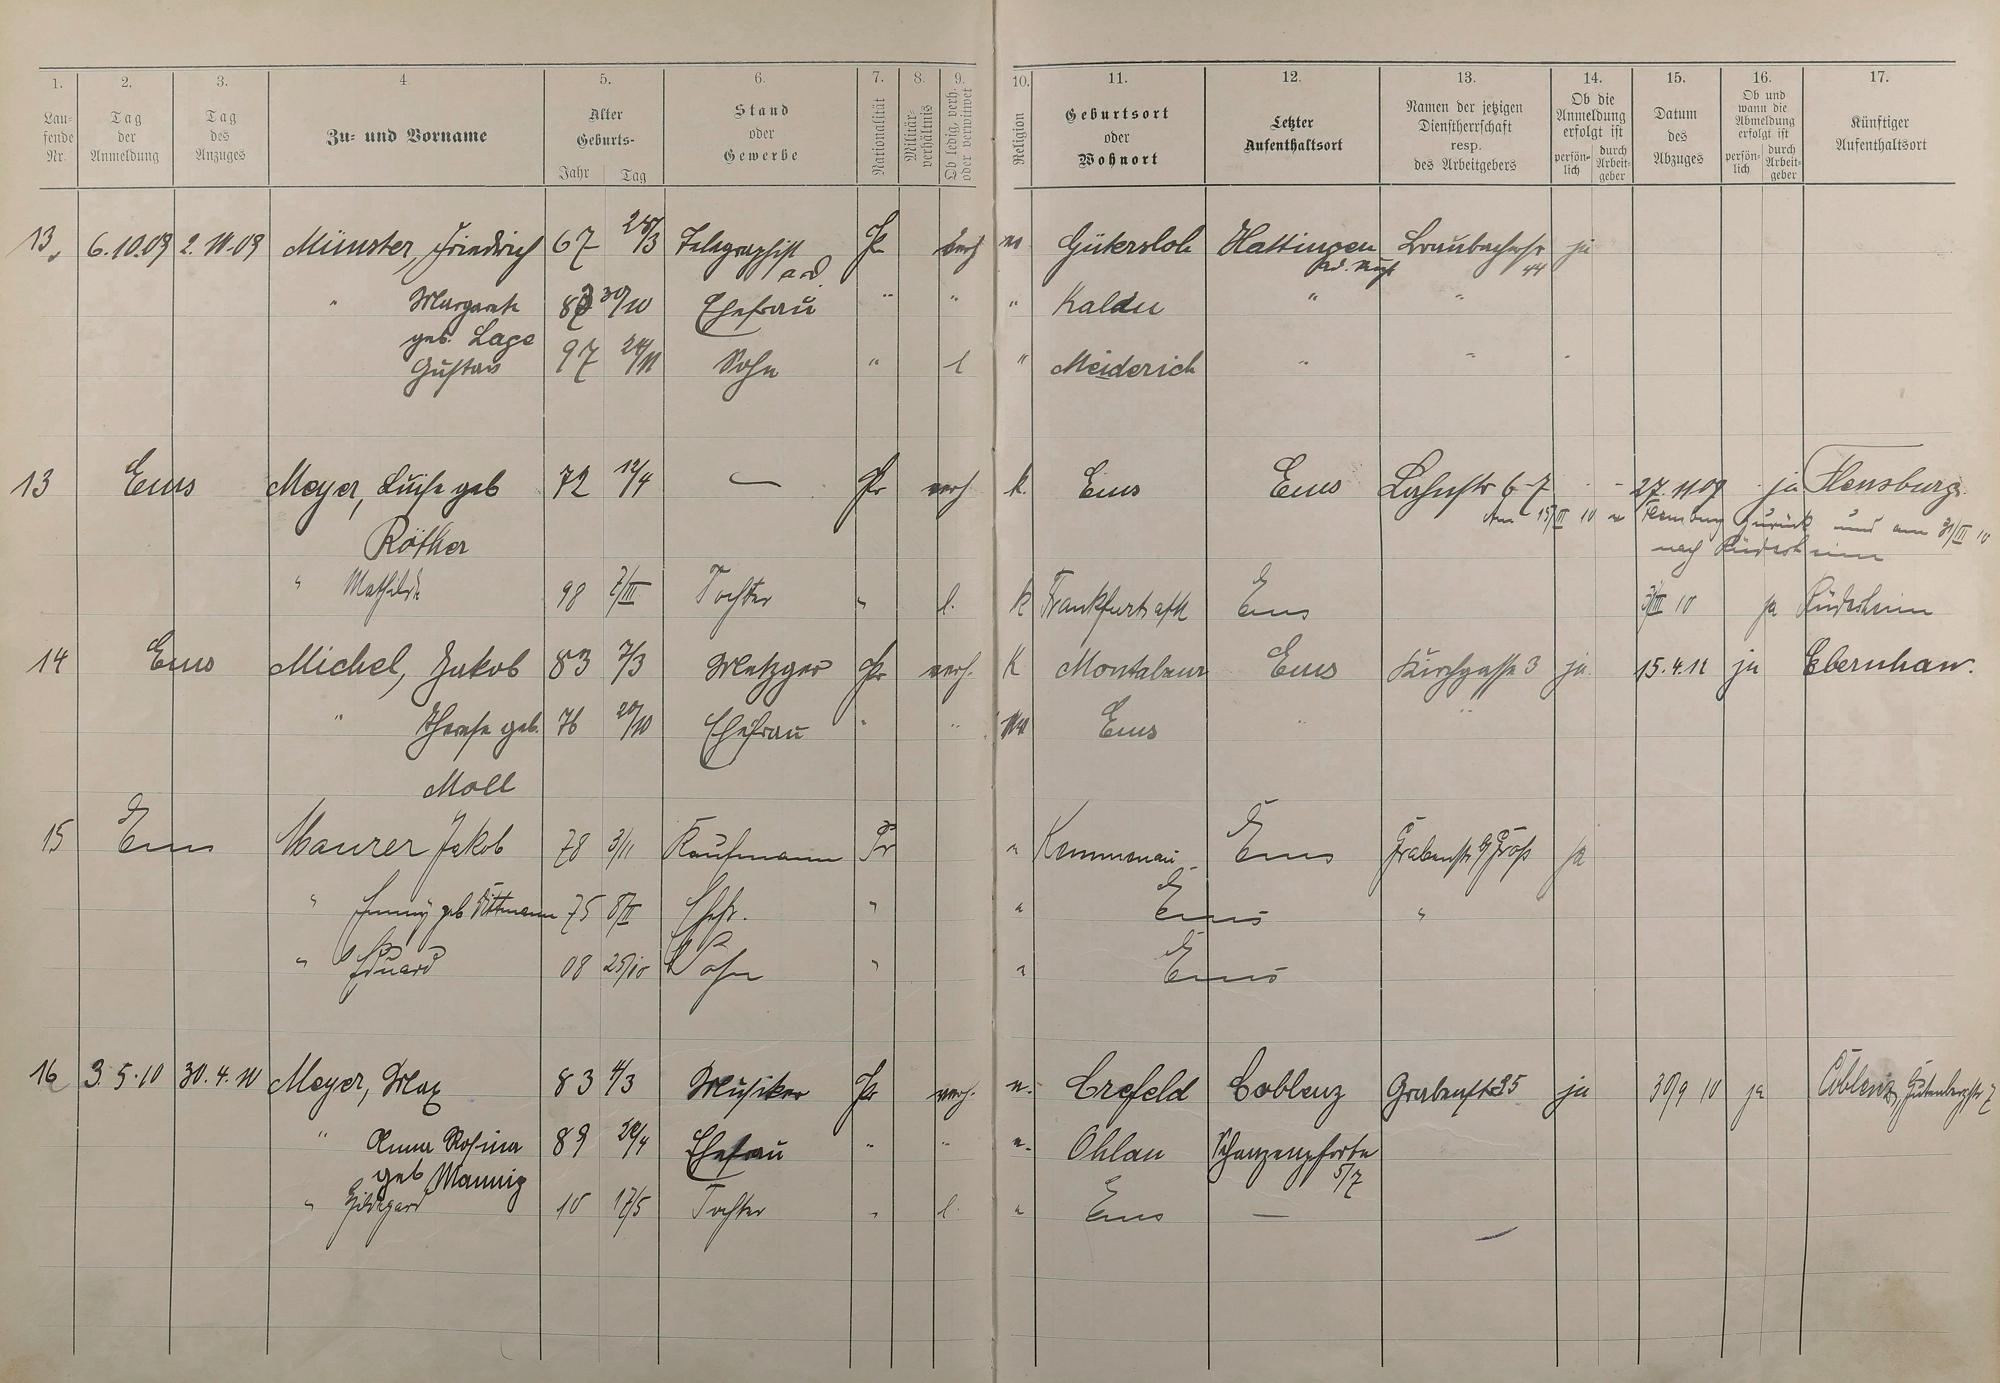 1. 2. 3. 4 5. 6. 7. 8. 9. 10. 11. 12. 13. 14. 15. 16. 17.
Lau- fende Nr. Tag der Anmeldung Tag des Anzuges Zu- und Vorname Alter Geburts- Jahr Tag Stand oder Gewerbe Nationalität Militär- verhältnis Ob ledig, verh. oder verwitwet Religion Geburtsort oder Wohnort Letzter Aufenthaltsort Namen der jetzigen Dienstherrschaft resp. des Arbeitgebers Ob die Anmeldung erfolgt ist persön- lich durch Arbeit- geber Datum des Abzuges Ob und wann die Abmeldung erfolgt ist persön- lich durch Arbeit- geber Künftiger Aufenthaltsort
13. 6.10.09 2.10.09 Münster, Friedrich 67 28/3 Telegraphist Pr verh Gütersloh Hattingen ja
a.D. 44
" Margarete 30/10 Ehefrau " " " " "
geb. Lage
Gustav 97 24/11 Sohn " l " Meiderich " " "
13 Ems Meyer, Luise geb 72 12/4 — Pr verh. k. Ems Ems Lahnstr 6-7 27.11.09 ja Flensburg.
Röther zurück und am 31/III 10
nach Rüdesheim
" Mathilde 98 7/III Tochter " l. k Frankfurt a/M Ems 31/III 10 ja Rüdesheim
14 Ems Michel, Jakob 83 7/3 Metzger Pr verh. K Montabaur Ems Kirchgasse 3 ja. 15.4.12 ja Ebernhan.
" Therese geb. 76 20/10 Ehefrau " " Ems " "
Moll
15 Ems Maurer Jakob 78 3/11 Kaufmann Pr " Kemmenau Ems Grabenstr ja
" Emmy geb Dittmann 75 8/II Ehefr. " " Ems "
" Eduard 08 25/10 Sohn " " Ems
16 3.5.10 30.4.10 Meyer, Max 83 4/3 Musiker Pr verh. Crefeld Coblenz Grabenstr 35 ja 30/9 10 ja Coblenz, Gutenbergstr 7
" Anna Rosina 89 Ehefrau " " Ohlau Schanzenpforte
geb Mannig 5/7
" Hildegard 10 17/5 Tochter " l. " Ems —